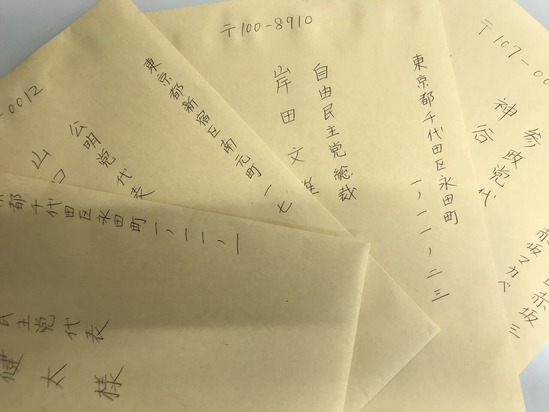 〒100-8910
東京都千代田区永田町
一ノ十一ノ二三
自由民主党総裁
岸田文雄
〒107-00
参政党代
神谷
赤坂
赤坂マカベ
三
0012
東京都新宿区南元町
一七
公明党代表
山口
都千代田区永田町一ノ一一ノ一
民主党代表
健太様